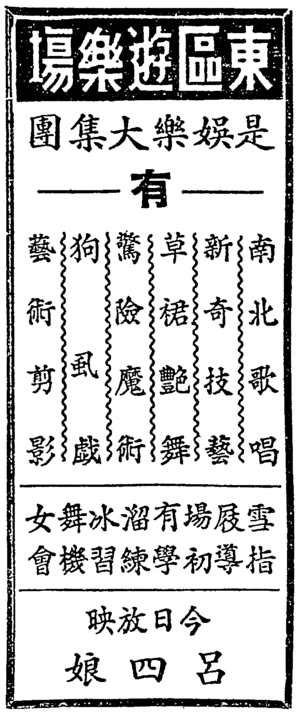 東區遊樂場
是娛樂大集團
有
南北歌唱
新奇技藝
草裙艷舞
驚險魔術
狗虱戲
藝術剪影
雪屐場有溜冰舞女
指導初學練習機會
今日放映
呂四娘